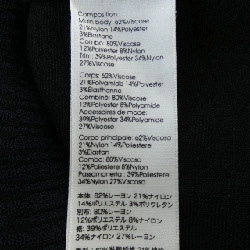 Composition
Main body: 62%Viscose
21%Nylon 14%Polyester
3%Elastane
Combo: 80%Viscose
12%Polyester 8%Nylon
Trim: 39%Polyester 34%Nylon
27%Viscose
Corps: 62%Viscose
21%Polyamide 14%Polyester
3%Elasthanne
Combiné: 80%Viscose
12%Polyester 8%Polyamide
Accessoires de mode:
39%Polyester 34%Polyamide
27%Viscose
Corpo principale: 62%Viscosa
21%Nylon 14%Poliestere
3%Elastan
Combo: 80%Viscosa
12%Poliestere 8%Nylon
39%Poliestere
34%Nylon 27%Viscosa
本体: 62%レーヨン 21%ナイロン
14%ポリエステル 3%ポリウレタン
別布: 80%レーヨン
12%ポリエステル 8%ナイロン
39%ポリエステル
34%ナイロン 27%レーヨン